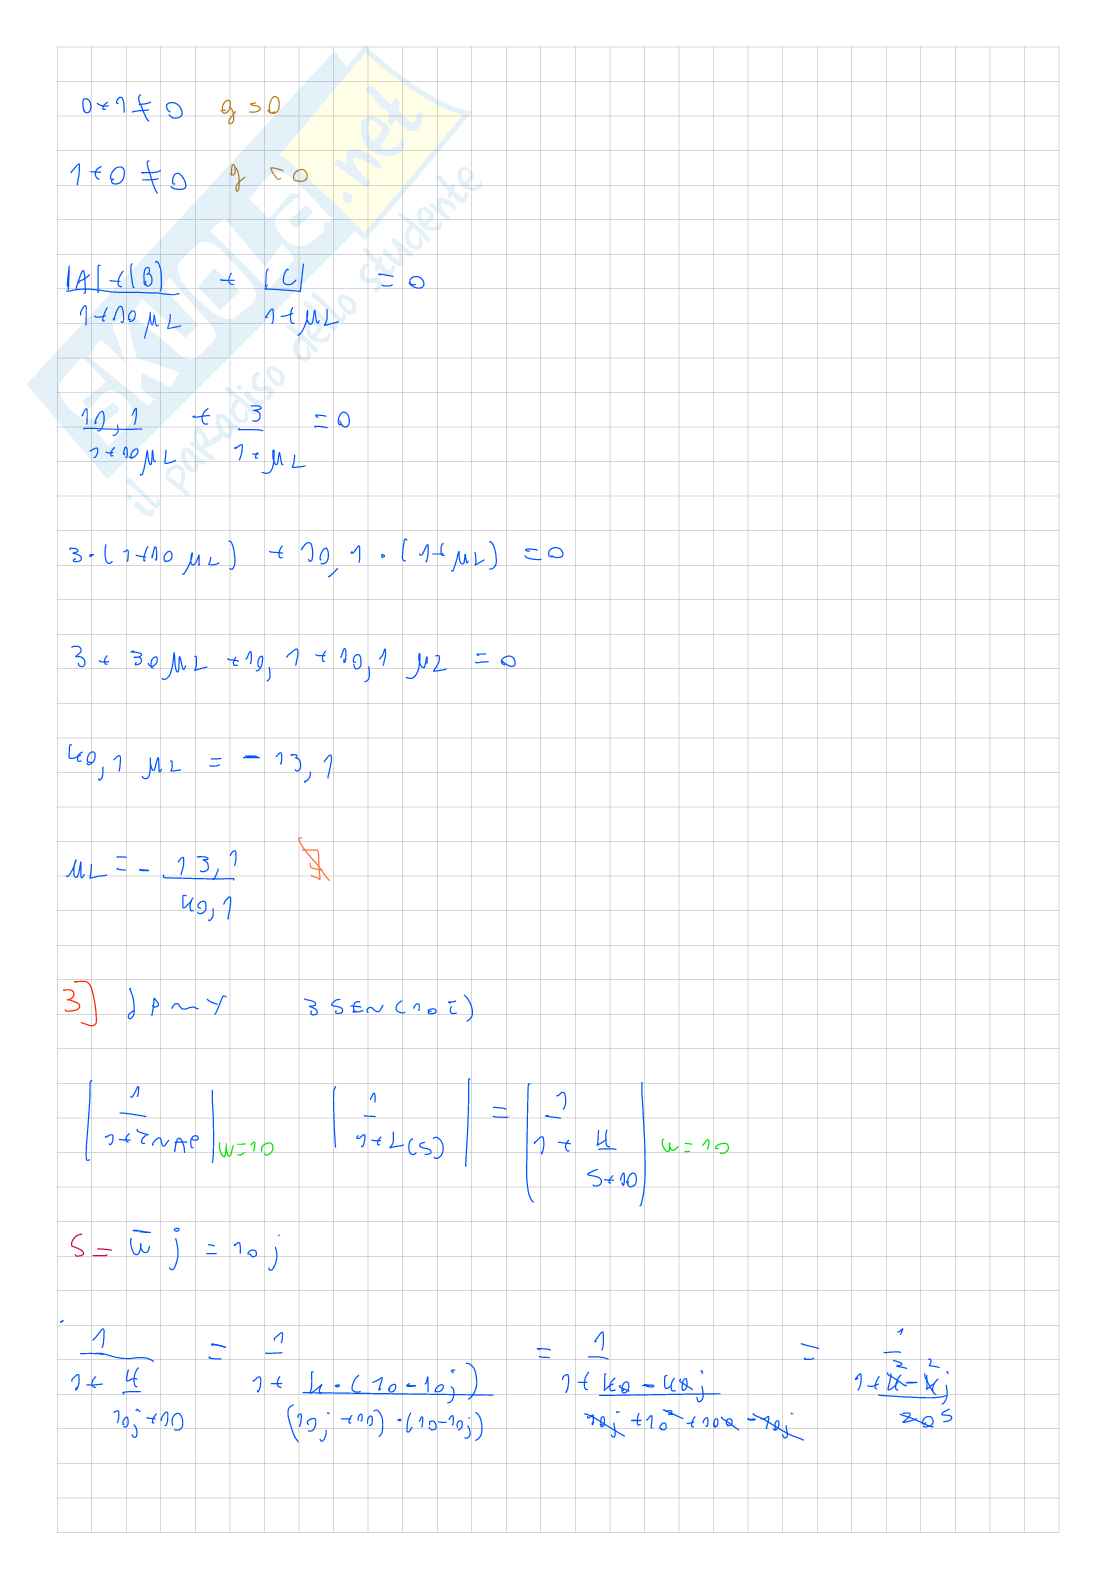 0+1≠0 g>0
1+0≠0 g<0
|A|+|B| / 1+10μL + |C| / 1+μL = 0
10,1 / 1+10μL + 3 / 1+μL = 0
3·(1+10μL) + 10,1·(1+μL) = 0
3 + 30μL + 10,1 + 10,1 μL = 0
40,1 μL = - 13,1
μL = - 13,1 / 40,1 ∄
3] d P ~ Y 3 SEN(10t)
|1 / 1+ZNAP| w=10 |1 / 1+L(S)| = |1 / 1+ 4 / S+10| w=10
S = w̄ j = 10j
1 / 1+ 4 / 10j+10 = 1 / 1+ 4·(10-10j) / (10j+10)·(10-10j) = 1 / 1+ 40-40j / 10j+10²+100-10j = 1 / 1+ 2-2j / 5
SKUOLA.net
il paradiso dello studente